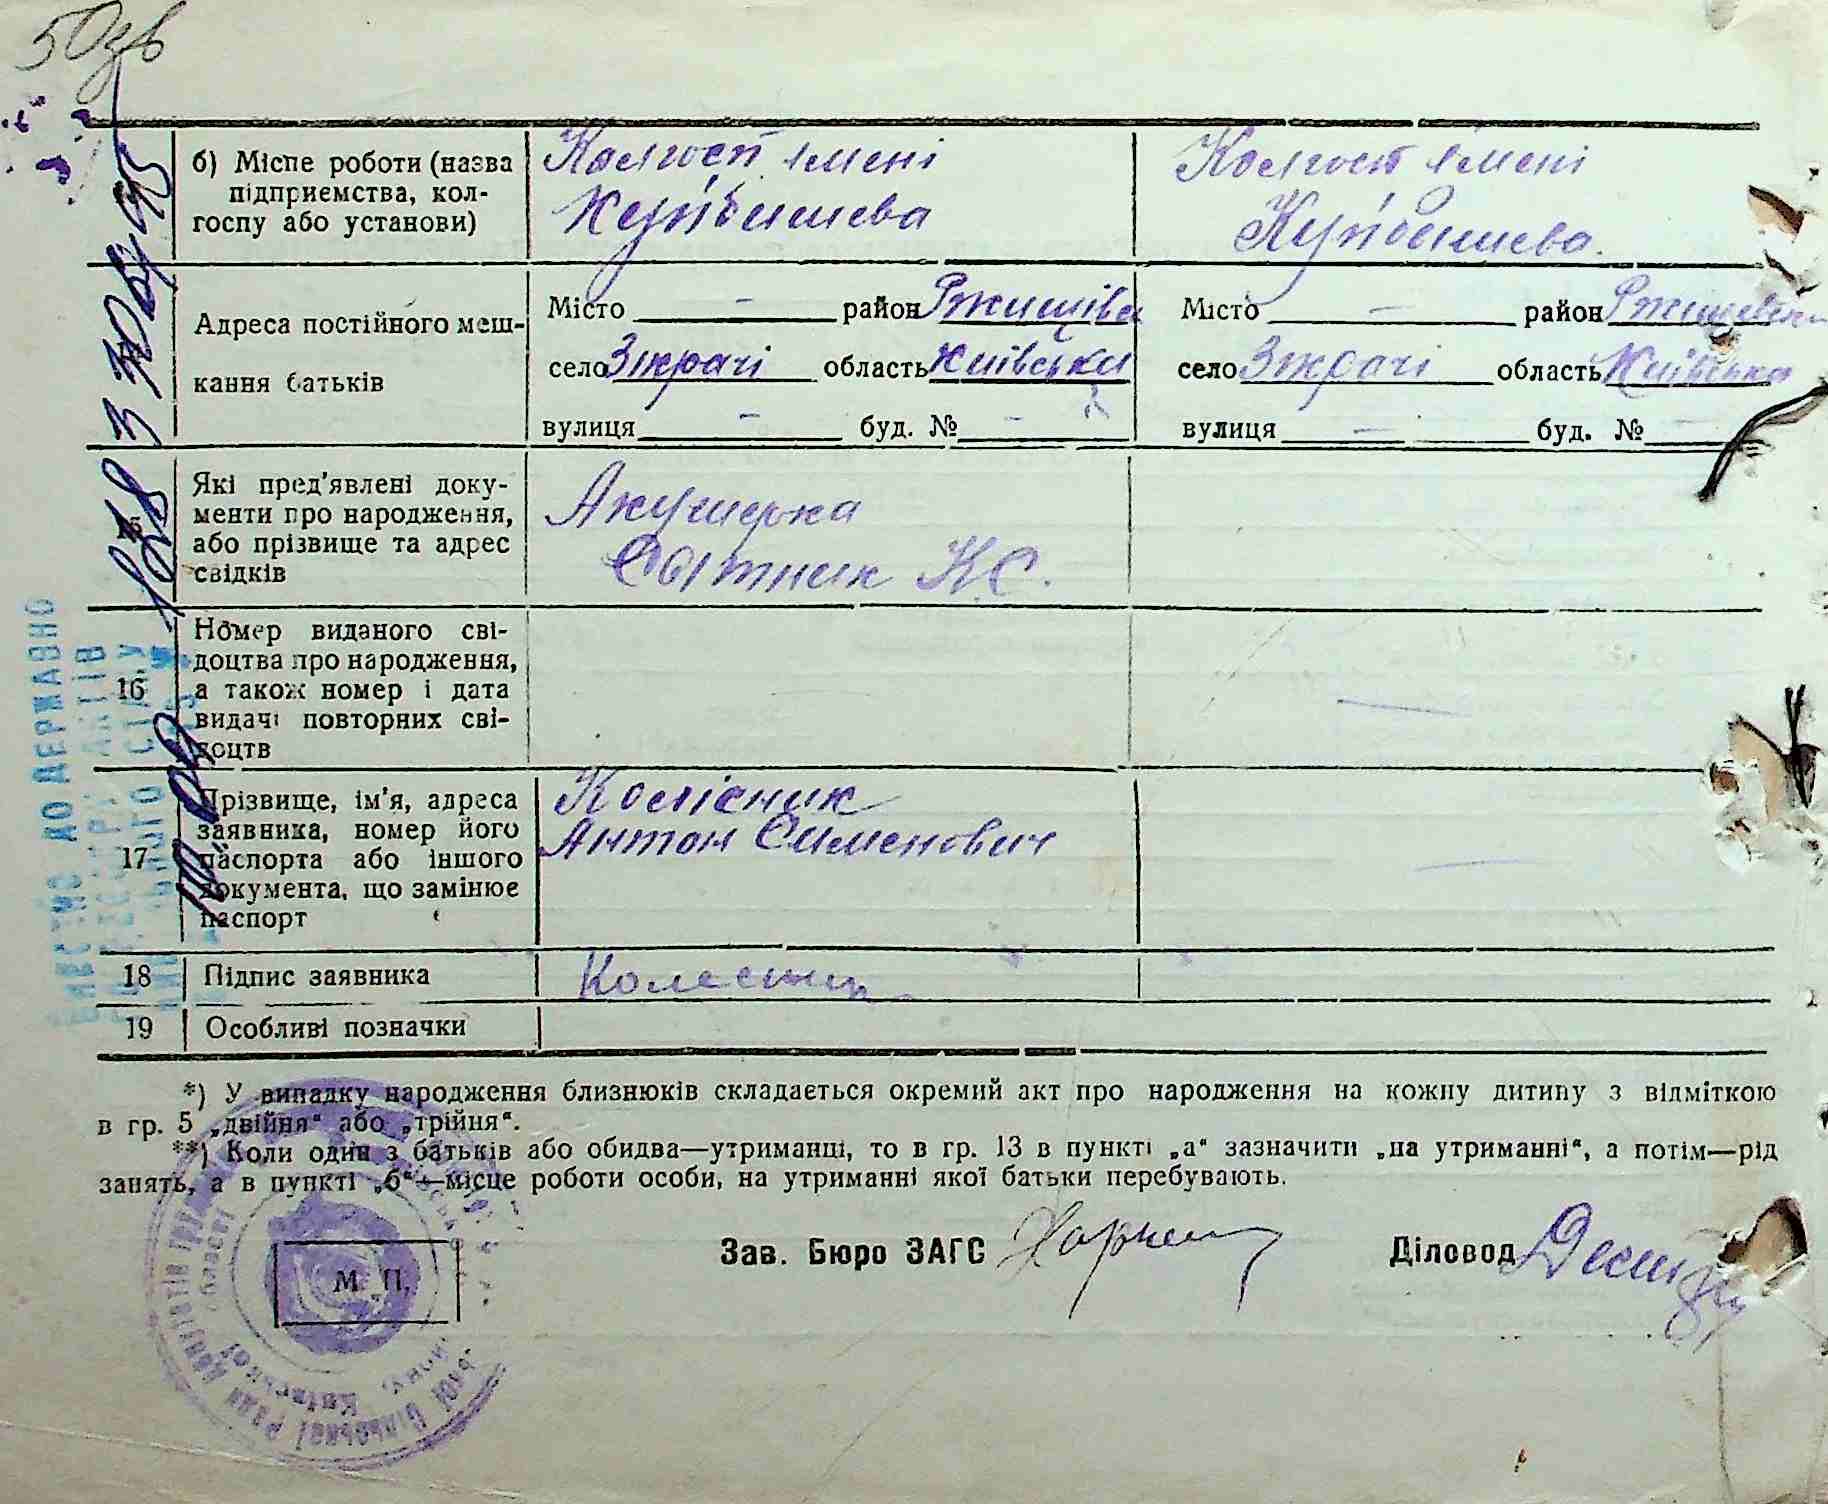 50зв
б) Місце роботи (назва підприємства, колгоспу або установи)
Колгосп імені Куйбишева
Колгосп імені Куйбишева.
Адреса постійного мешкання батьків
Місто — район Ржищівськ
село Зікрачі область Київська
вулиця — буд. № —
Місто — район Ржищевськ
село Зікрачі область Київська
вулиця — буд. №
Які пред'явлені документи про народження, або прізвище та адрес свідків
Акушерка
Сытник К.С.
16 Номер виданого свідоцтва про народження, а також номер і дата видачі повторних свідоцтв
17 Прізвище, ім'я, адреса заявника, номер його паспорта або іншого документа, що замінює паспорт
Колісник
Антон Сименович
18 Підпис заявника
Колесник
19 Особливі позначки
*) У випадку народження близнюків складається окремий акт про народження на кожну дитину з відміткою
в гр. 5 „двійня“ або „трійня“.
**) Коли один з батьків або обидва—утриманці, то в гр. 13 в пункті „а“ зазначити „на утриманні“, а потім—рід
занять, а в пункті „б“—місце роботи особи, на утриманні якої батьки перебувають.
Зав. Бюро ЗАГС
Діловод
М. П.
ВНЕСЕНО ДО ДЕРЖАВНО